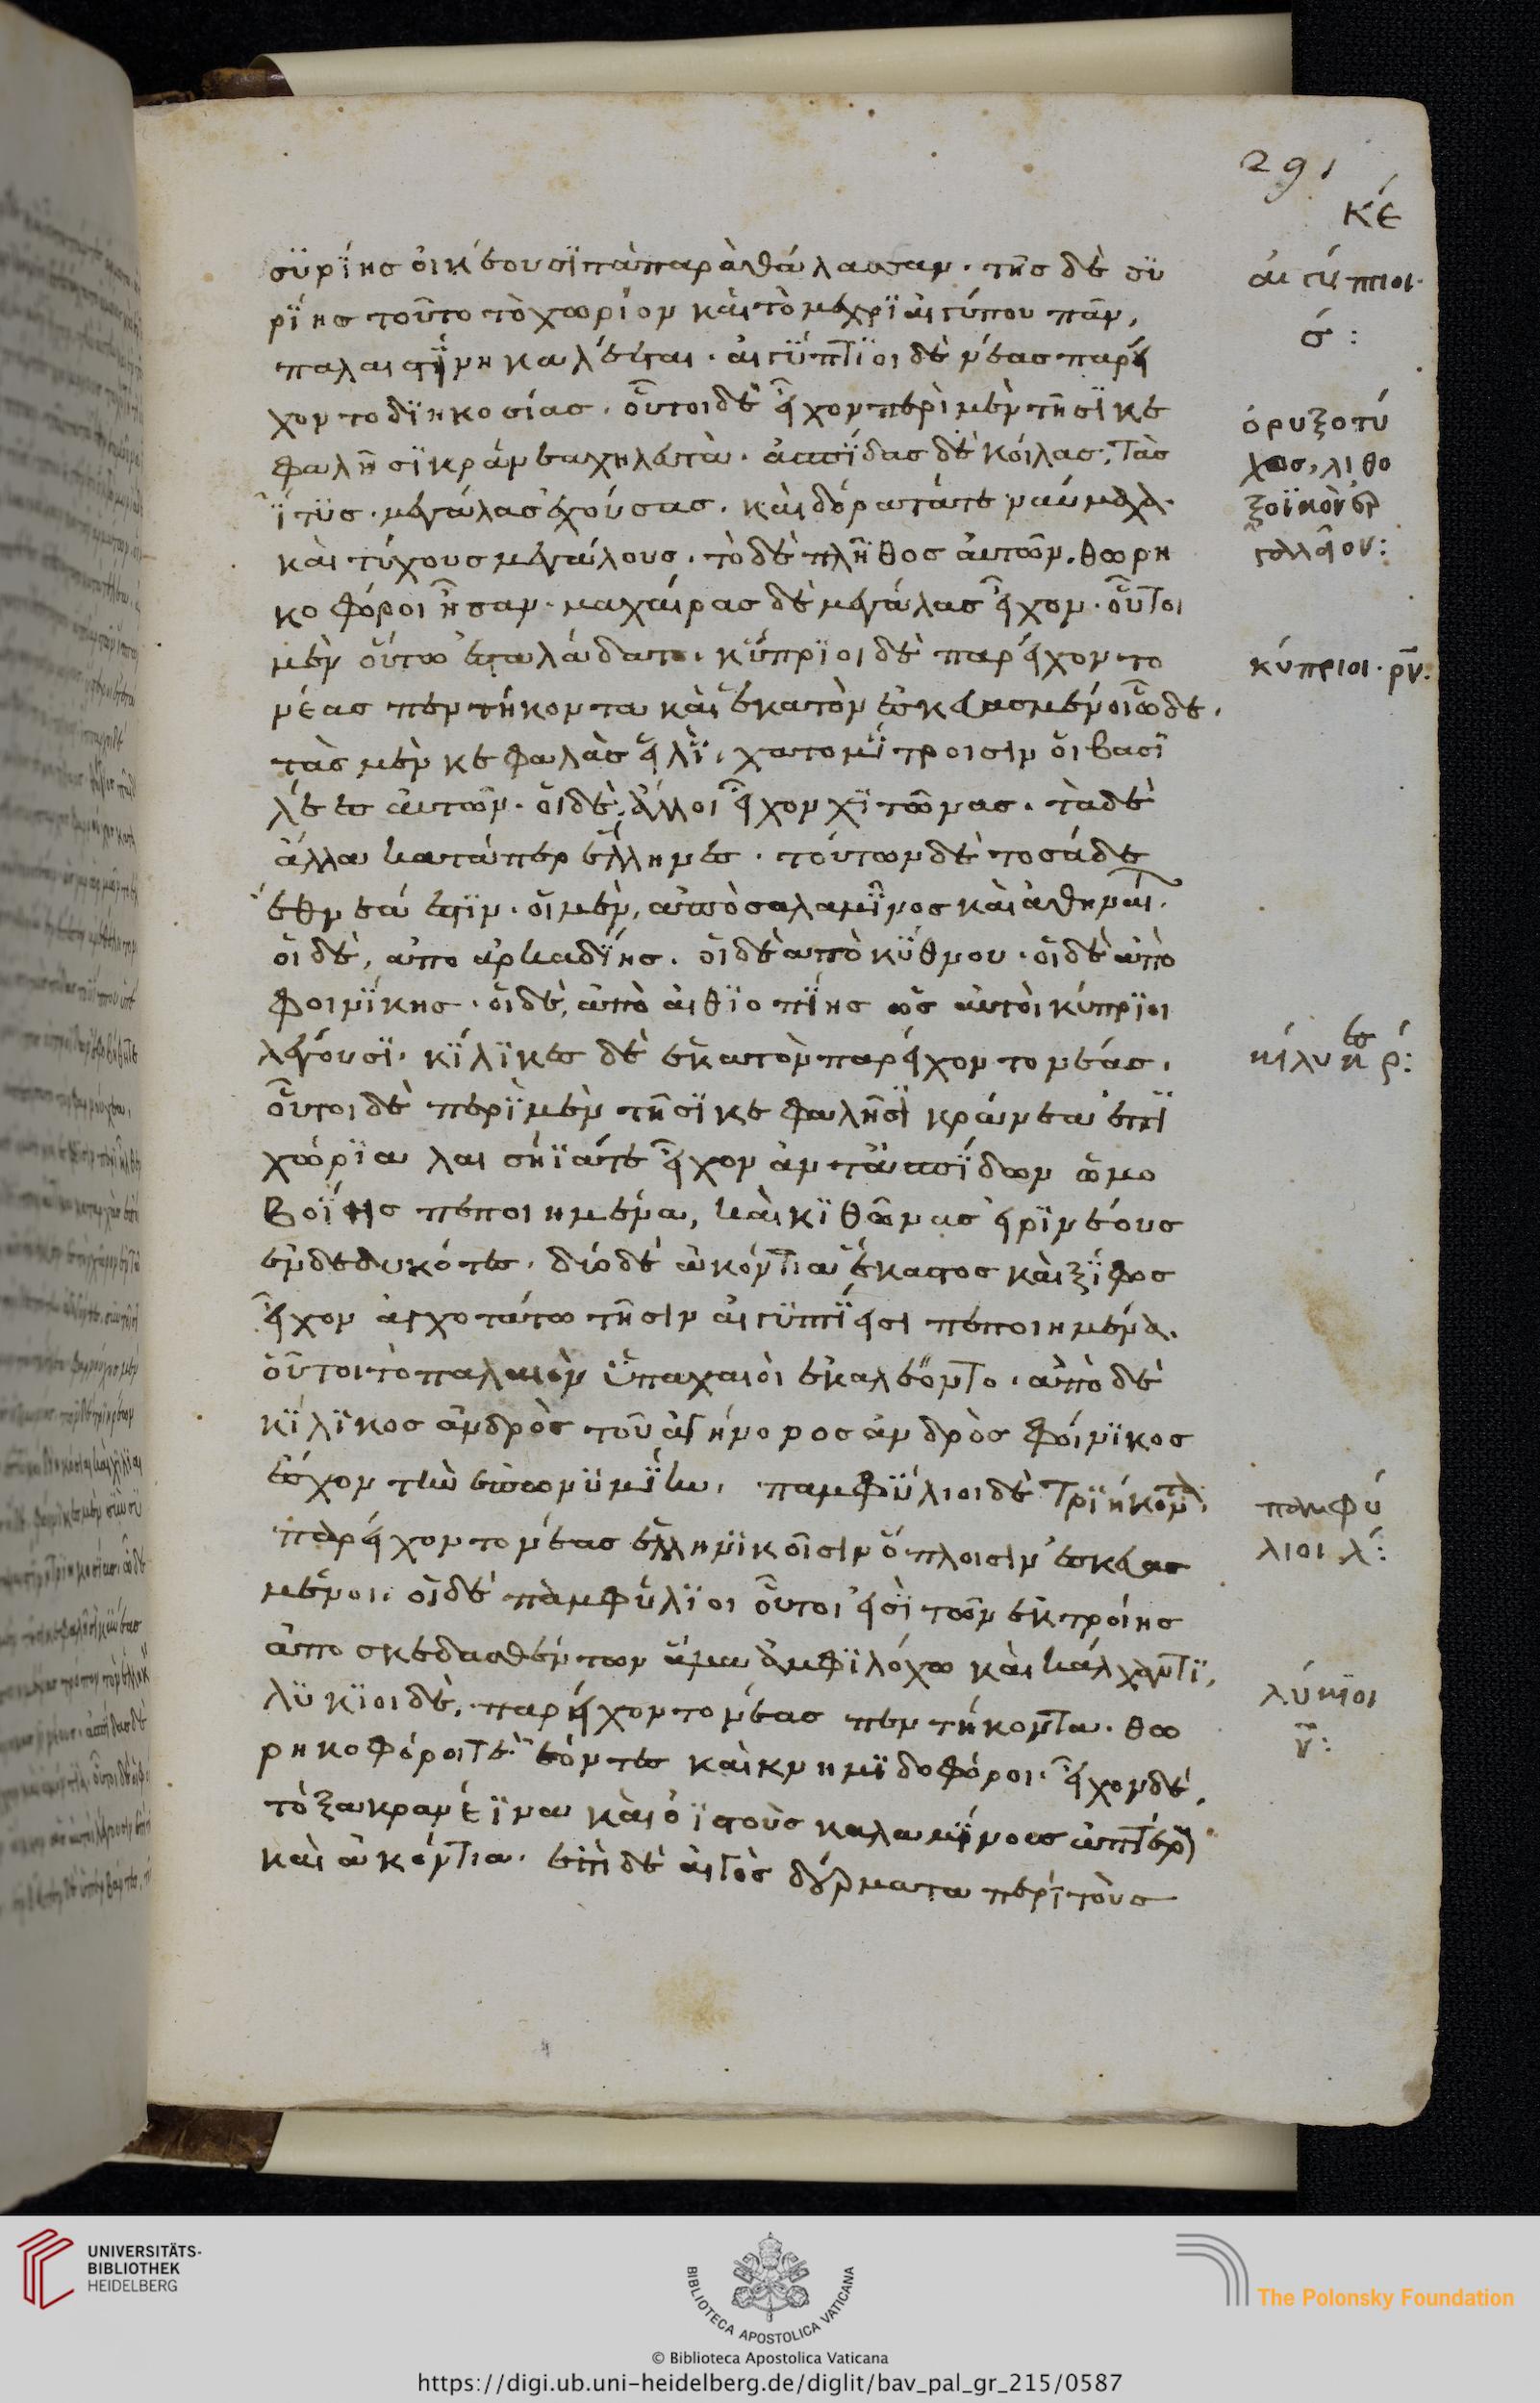 291
κέ
συρίησ οἰκέουσϊ τὰ παρὰ θάλασσαν. τῆσ δὲ συ
ρϊησ τοῦτο τὸ χωρίον καὶ τὸ μέχρι αἰγύπου πᾶν,
παλαιστίνη καλέεται. αἰγύπτϊοι δὲ νέασ παρεί
χοντο δϊηκοσίασ. οὗτοι δὲ εἶχον περὶ μὲν τῆσϊ κε
φαλῆσϊ κράνεα χηλευτὰ. ἀσπίδασ δὲ κοίλασ, τὰσ
ἴτυσ μεγάλασ ἐχούσασ. καὶ δόρατά τε ναύμαχα.
καὶ τύχουσ μεγάλουσ. τὸ δὲ πλῆθοσ αὐτῶν. θωρη
κοφόροι ἦσαν. μαχαίρασ δὲ μεγάλασ εἶχον. οὗτοι
μὲν οὕτω ἐσταλάδατο. κύπρϊοι δὲ παρείχοντο
νέασ πεντήκοντα καὶ ἑκατὸν ἐσκευασμένοι ὧδε.
τὰσ μὲν κεφαλὰσ εἱλϊχατο μίτροισιν οἱ βασϊ
λέεσ αὐτῶν. οἱ δὲ ἄλλοι εἶχον χϊτῶνασ. τὰ δὲ
ἄλλα κατάπερ ἕλληνεσ. τούτων δὲ τοσάδε
ἔθνεά ἐστϊν. οἱ μὲν, ἀπὸ σαλαμῖνοσ καὶ ἀθηνέων.
οἱ δὲ, ἀπο ἀρκαδϊησ. οἱ δὲ ἀπὸ κύθνου. οἱ δὲ ἀπὸ
φοινίκησ. οἱ δὲ, ἀπὸ αἰθϊοπίησ ὡσ αὐτοὶ κύπριοι
λέγουσϊ. κίλϊκεσ δὲ ἑκατὸν παρείχοντο νέασ.
οὗτοι δὲ περὶ μὲν τῆσϊ κεφαλῆσϊ κράνεα ἐπϊ
χώρϊα λαισήϊά τε εἶχον ἀντ᾽ ἀσπίδων ὠμο
βοΐησ πεποιημένα, καὶ κϊθῶνασ εἰρϊνέουσ
ἐνδεδυκότεσ. δύο δὲ ἀκόντια ἕκαστοσ καὶ ξίφοσ
εἶχον ἀγχοτάτω τῆσιν αἰγυπτίησι πεποιημένα.
οὗτοι τὸ παλαιὸν ὑπαχαιοὶ ἐκαλέοντο. ἀπὸ δὲ
κίλϊκοσ ἀνδρὸσ τοῦ ἀγήνοροσ ἀνδρὸσ φοίνϊκοσ
ἔσχον τὴν ἐπωνυμίην. παμφύλιοι δὲ τρϊήκοντα,
παρείχοντο νέασ ἑλληνϊκοῖσιν ὅπλοισιν ἐσκευασ
μένοι. οἱ δὲ παμφύλϊοι οὗτοι εἰσὶ τῶν ἐκ τροίησ
ἀποσκεδασθέντων ἅμα ἀμφϊλόχω καὶ κάλχαντϊ,
λύκϊοι δὲ, παρείχοντο νέασ πεντήκοντα. θω
ρηκοφόροι τὲ ἐόντεσ καὶ κνημϊδοφόροι. εἶχον δὲ,
τόξα κρανέϊνα καὶ ὀϊστοὺσ καλαμίνουσ ἀπτέρουσ
καὶ ἀκόντια. ἐπὶ δὲ αἰγὸσ δέρματα περὶ τοὺσ
αἰγύπτιοι.
σ́ :
ὀρυξοτύ
χωσ, λιθο
κύπριοι. ρν:
κίλυκεσ ρ́:
παμφύ
λιοι λ́:
λύκϊοι
ν:
UNIVERSITÄTS-
BIBLIOTHEK
HEIDELBERG
BIBLIOTECA APOSTOLICA VATICANA
© Biblioteca Apostolica Vaticana
The Polonsky Foundation
https://digi.ub.uni-heidelberg.de/diglit/bav_pal_gr_215/0587